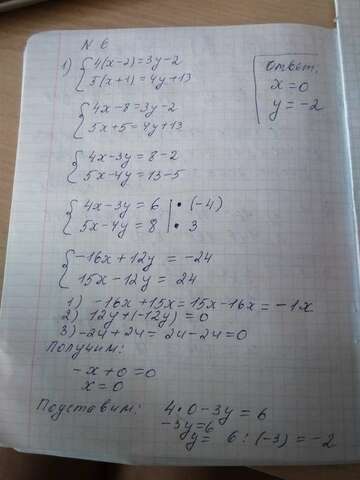 N 6
1) { 4(x-2)=3y-2
5(x+1)=4y+13
{ 4x-8=3y-2
5x+5=4y+13
{ 4x-3y=8-2
5x-4y=13-5
{ 4x-3y=6 | • (-4)
5x-4y=8 | • 3
{ -16x+12y = -24
15x-12y = 24
1) -16x+15x=15x-16x=-1x
2) 12y+(-12y)=0
3) -24+24=24-24=0
Получим:
-x+0=0
x=0
Подставим: 4•0-3y=6
-3y=6
y= 6:(-3)=-2
Ответ:
x=0
y=-2